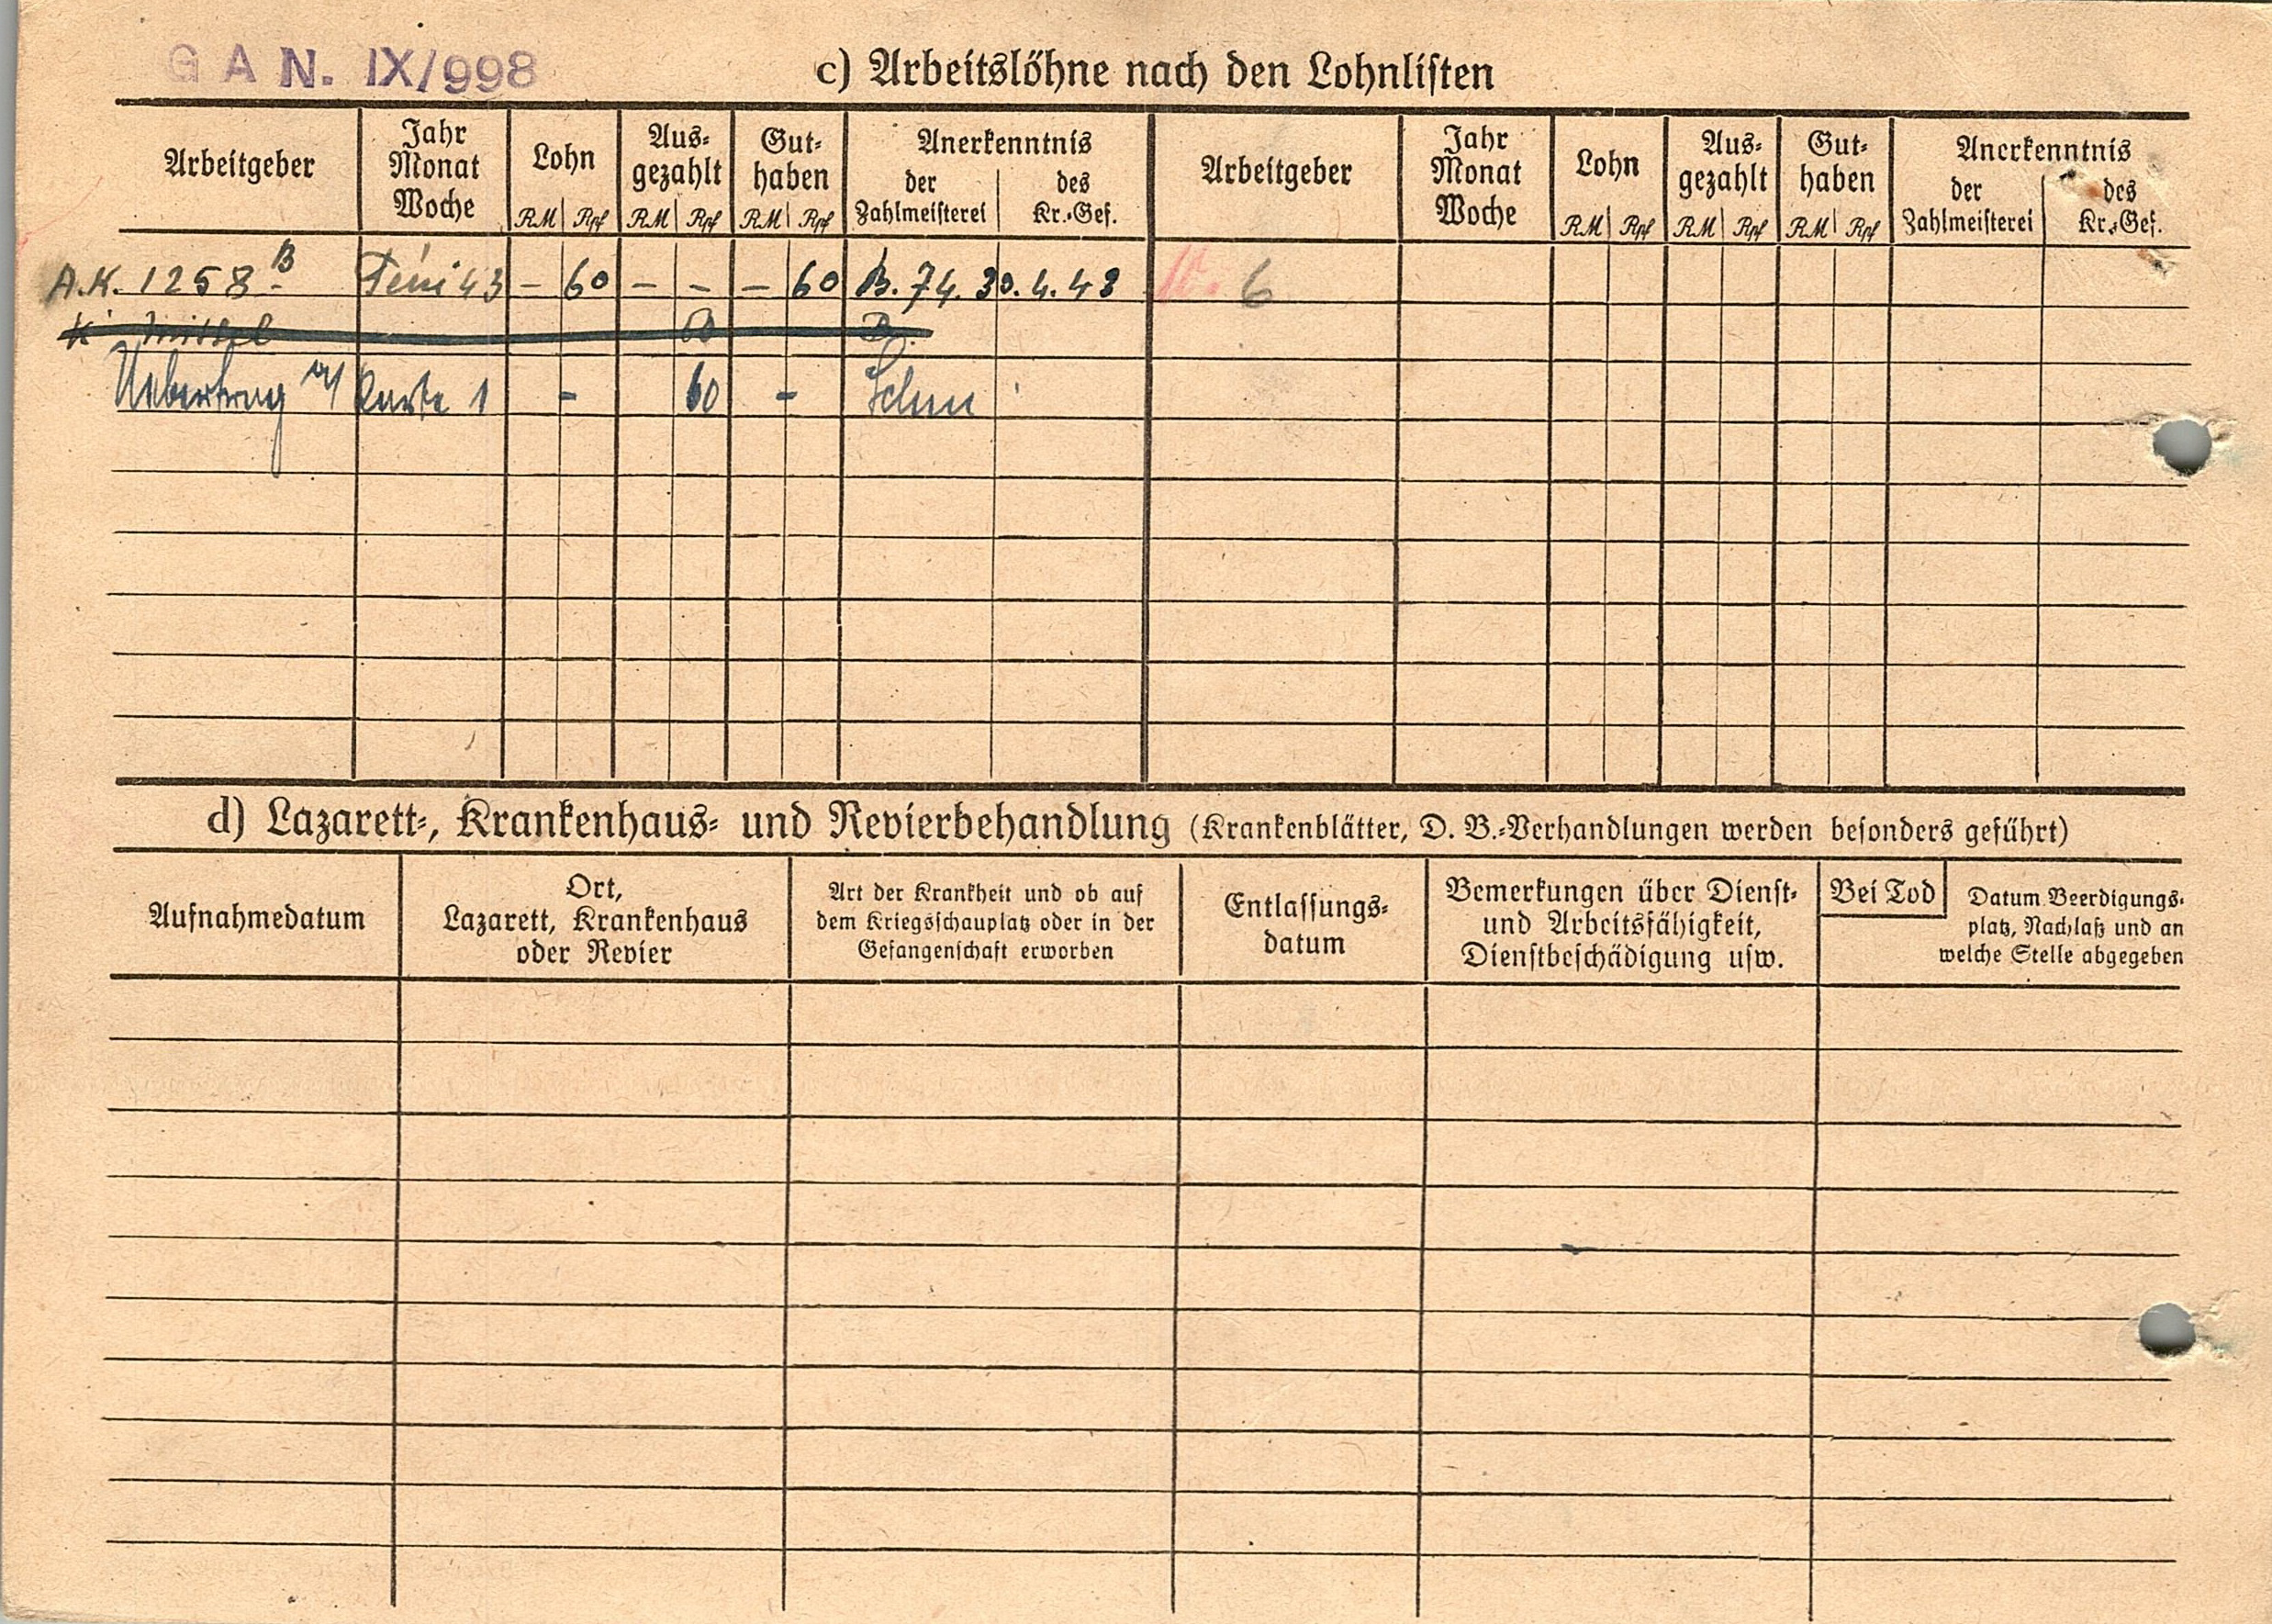 G A N. IX/998
c) Arbeitslöhne nach den Lohnlisten
Arbeitgeber
Jahr
Monat
Woche
Lohn
RM Rpf
Aus-
gezahlt
RM Rpf
Gut-
haben
RM Rpf
Anerkenntnis
der
Zahlmeisterei
des
Kr.-Gef.
Arbeitgeber
Jahr
Monat
Woche
Lohn
RM Rpf
Aus-
gezahlt
RM Rpf
Gut-
haben
RM Rpf
Anerkenntnis
der
Zahlmeisterei
des
Kr.-Gef.
A.K. 1258 B 43 – 60 – – – 60 B. 74. 30. 4. 43 6
Uebertrag a/ Karte 1 – 60 –
d) Lazarett-, Krankenhaus- und Revierbehandlung (Krankenblätter, D. B.-Verhandlungen werden besonders geführt)
Aufnahmedatum
Ort,
Lazarett, Krankenhaus
oder Revier
Art der Krankheit und ob auf
dem Kriegsschauplatz oder in der
Gefangenschaft erworben
Entlassungs-
datum
Bemerkungen über Dienst-
und Arbeitsfähigkeit,
Dienstbeschädigung usw.
Bei Tod
Datum Beerdigungs-
platz, Nachlaß und an
welche Stelle abgegeben